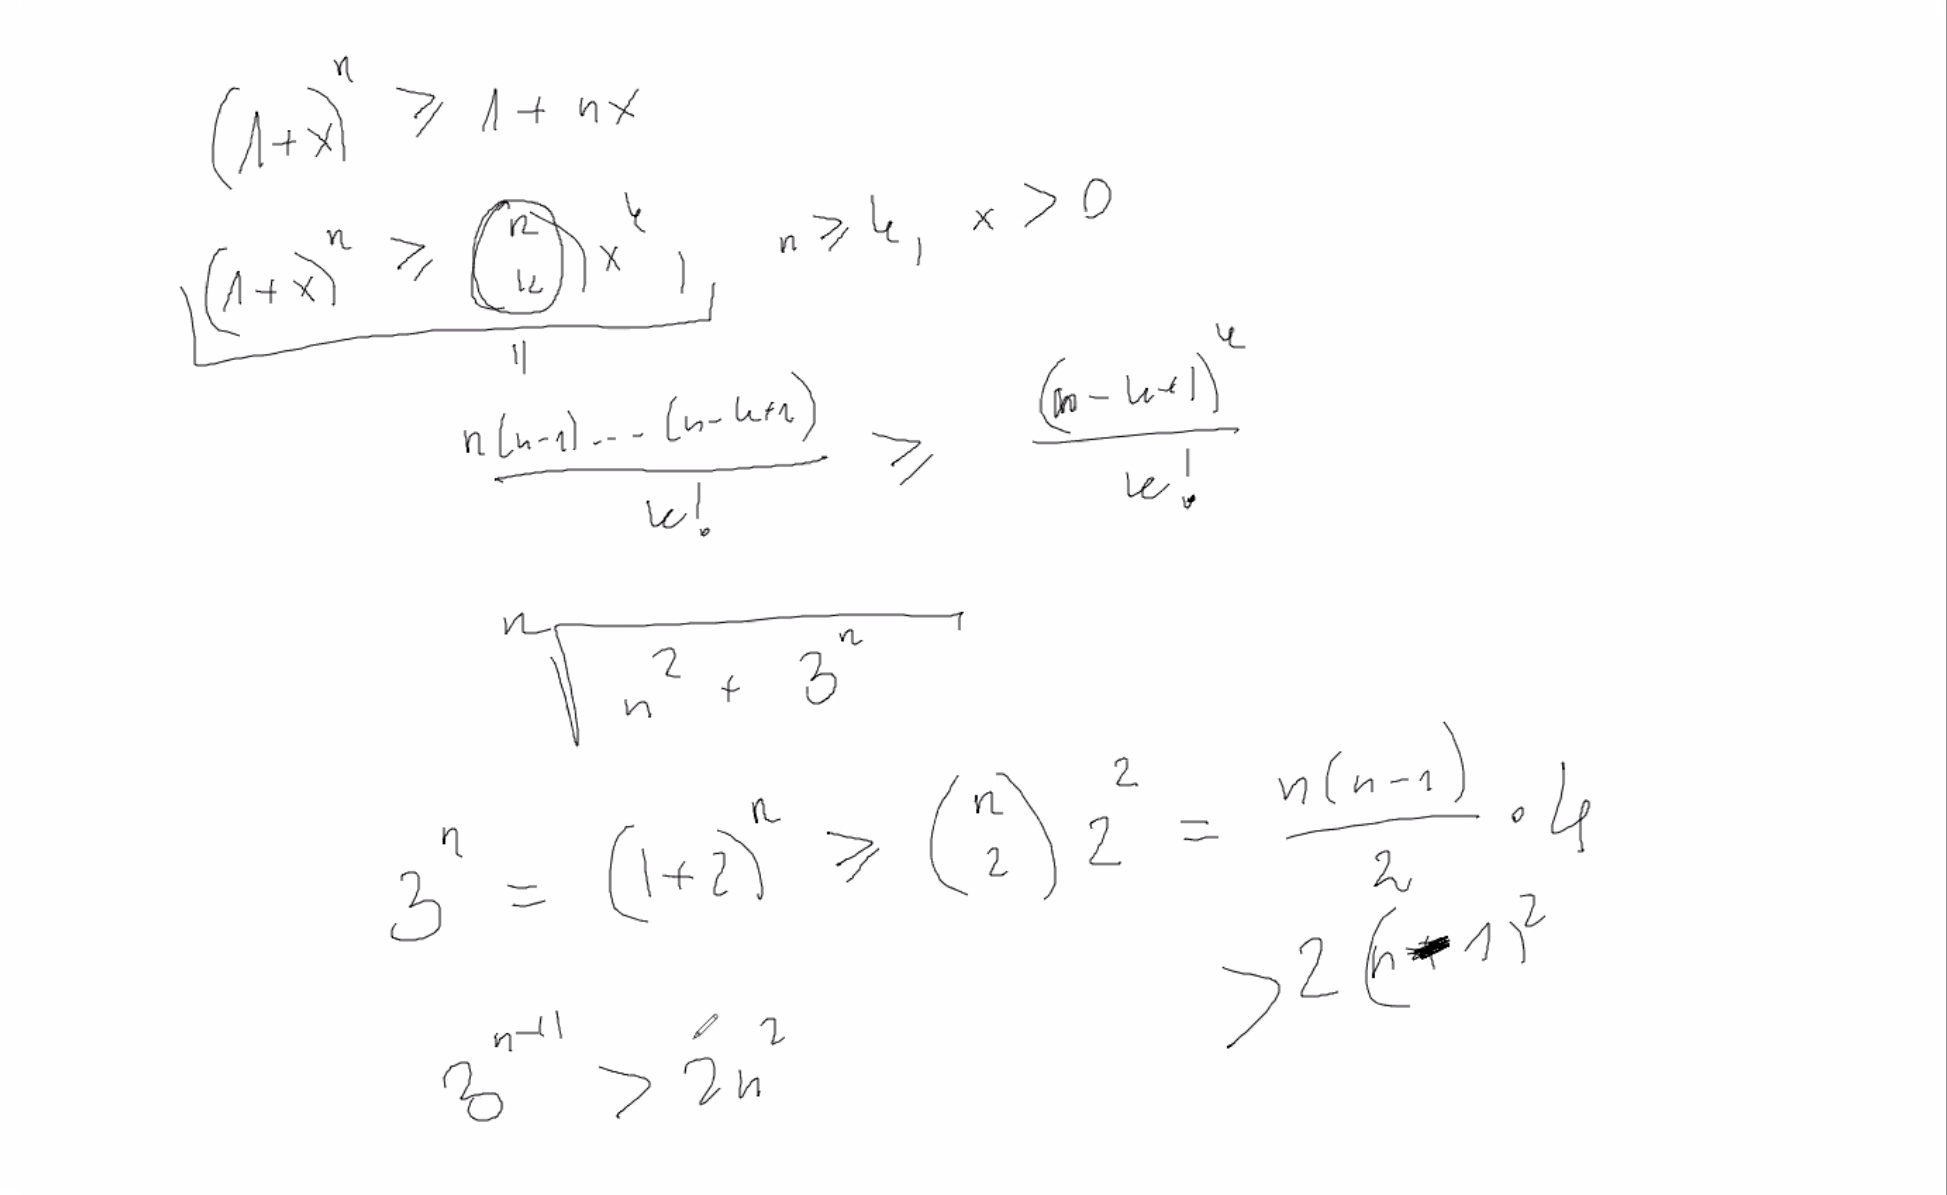 (1+x)^n ≥ 1 + nx
(1+x)^n ≥ (n k) x^k , n ≥ k, x > 0
||
n(n-1)...(n-k+1) / k! ≥ (n-k+1)^k / k!
ⁿ√(n^2 + 3^n)
3^n = (1+2)^n ≥ (n 2) 2^2 = n(n-1) / 2 · 4
> 2(n-1)^2
3^(n+1) > 2n^2